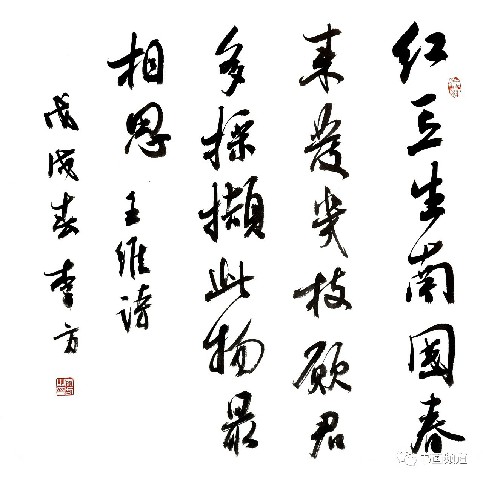 红豆生南國春
来发几枝愿君
多採撷此物最
相思 王维诗
戊戌春李方